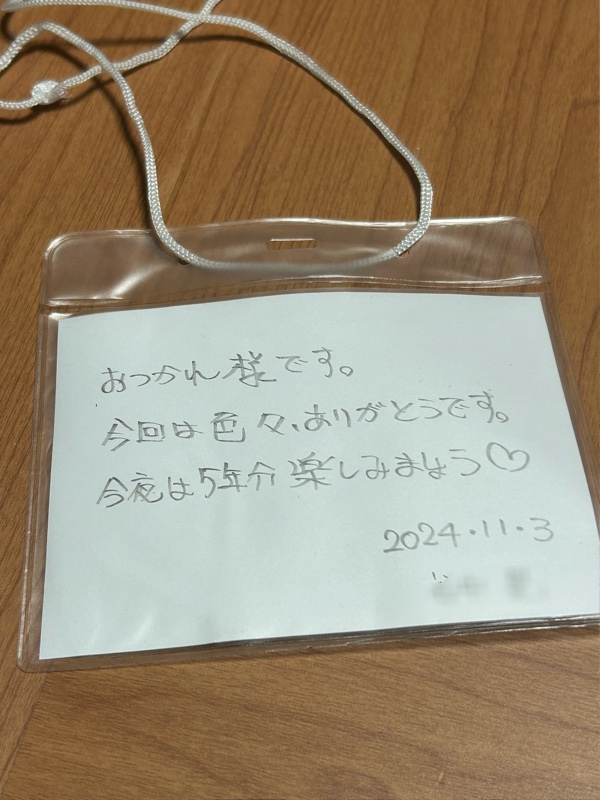 おつかれ様です。
今回は色々、ありがとうです。
今夜は5年分楽しみましょう♡
2024.11.3